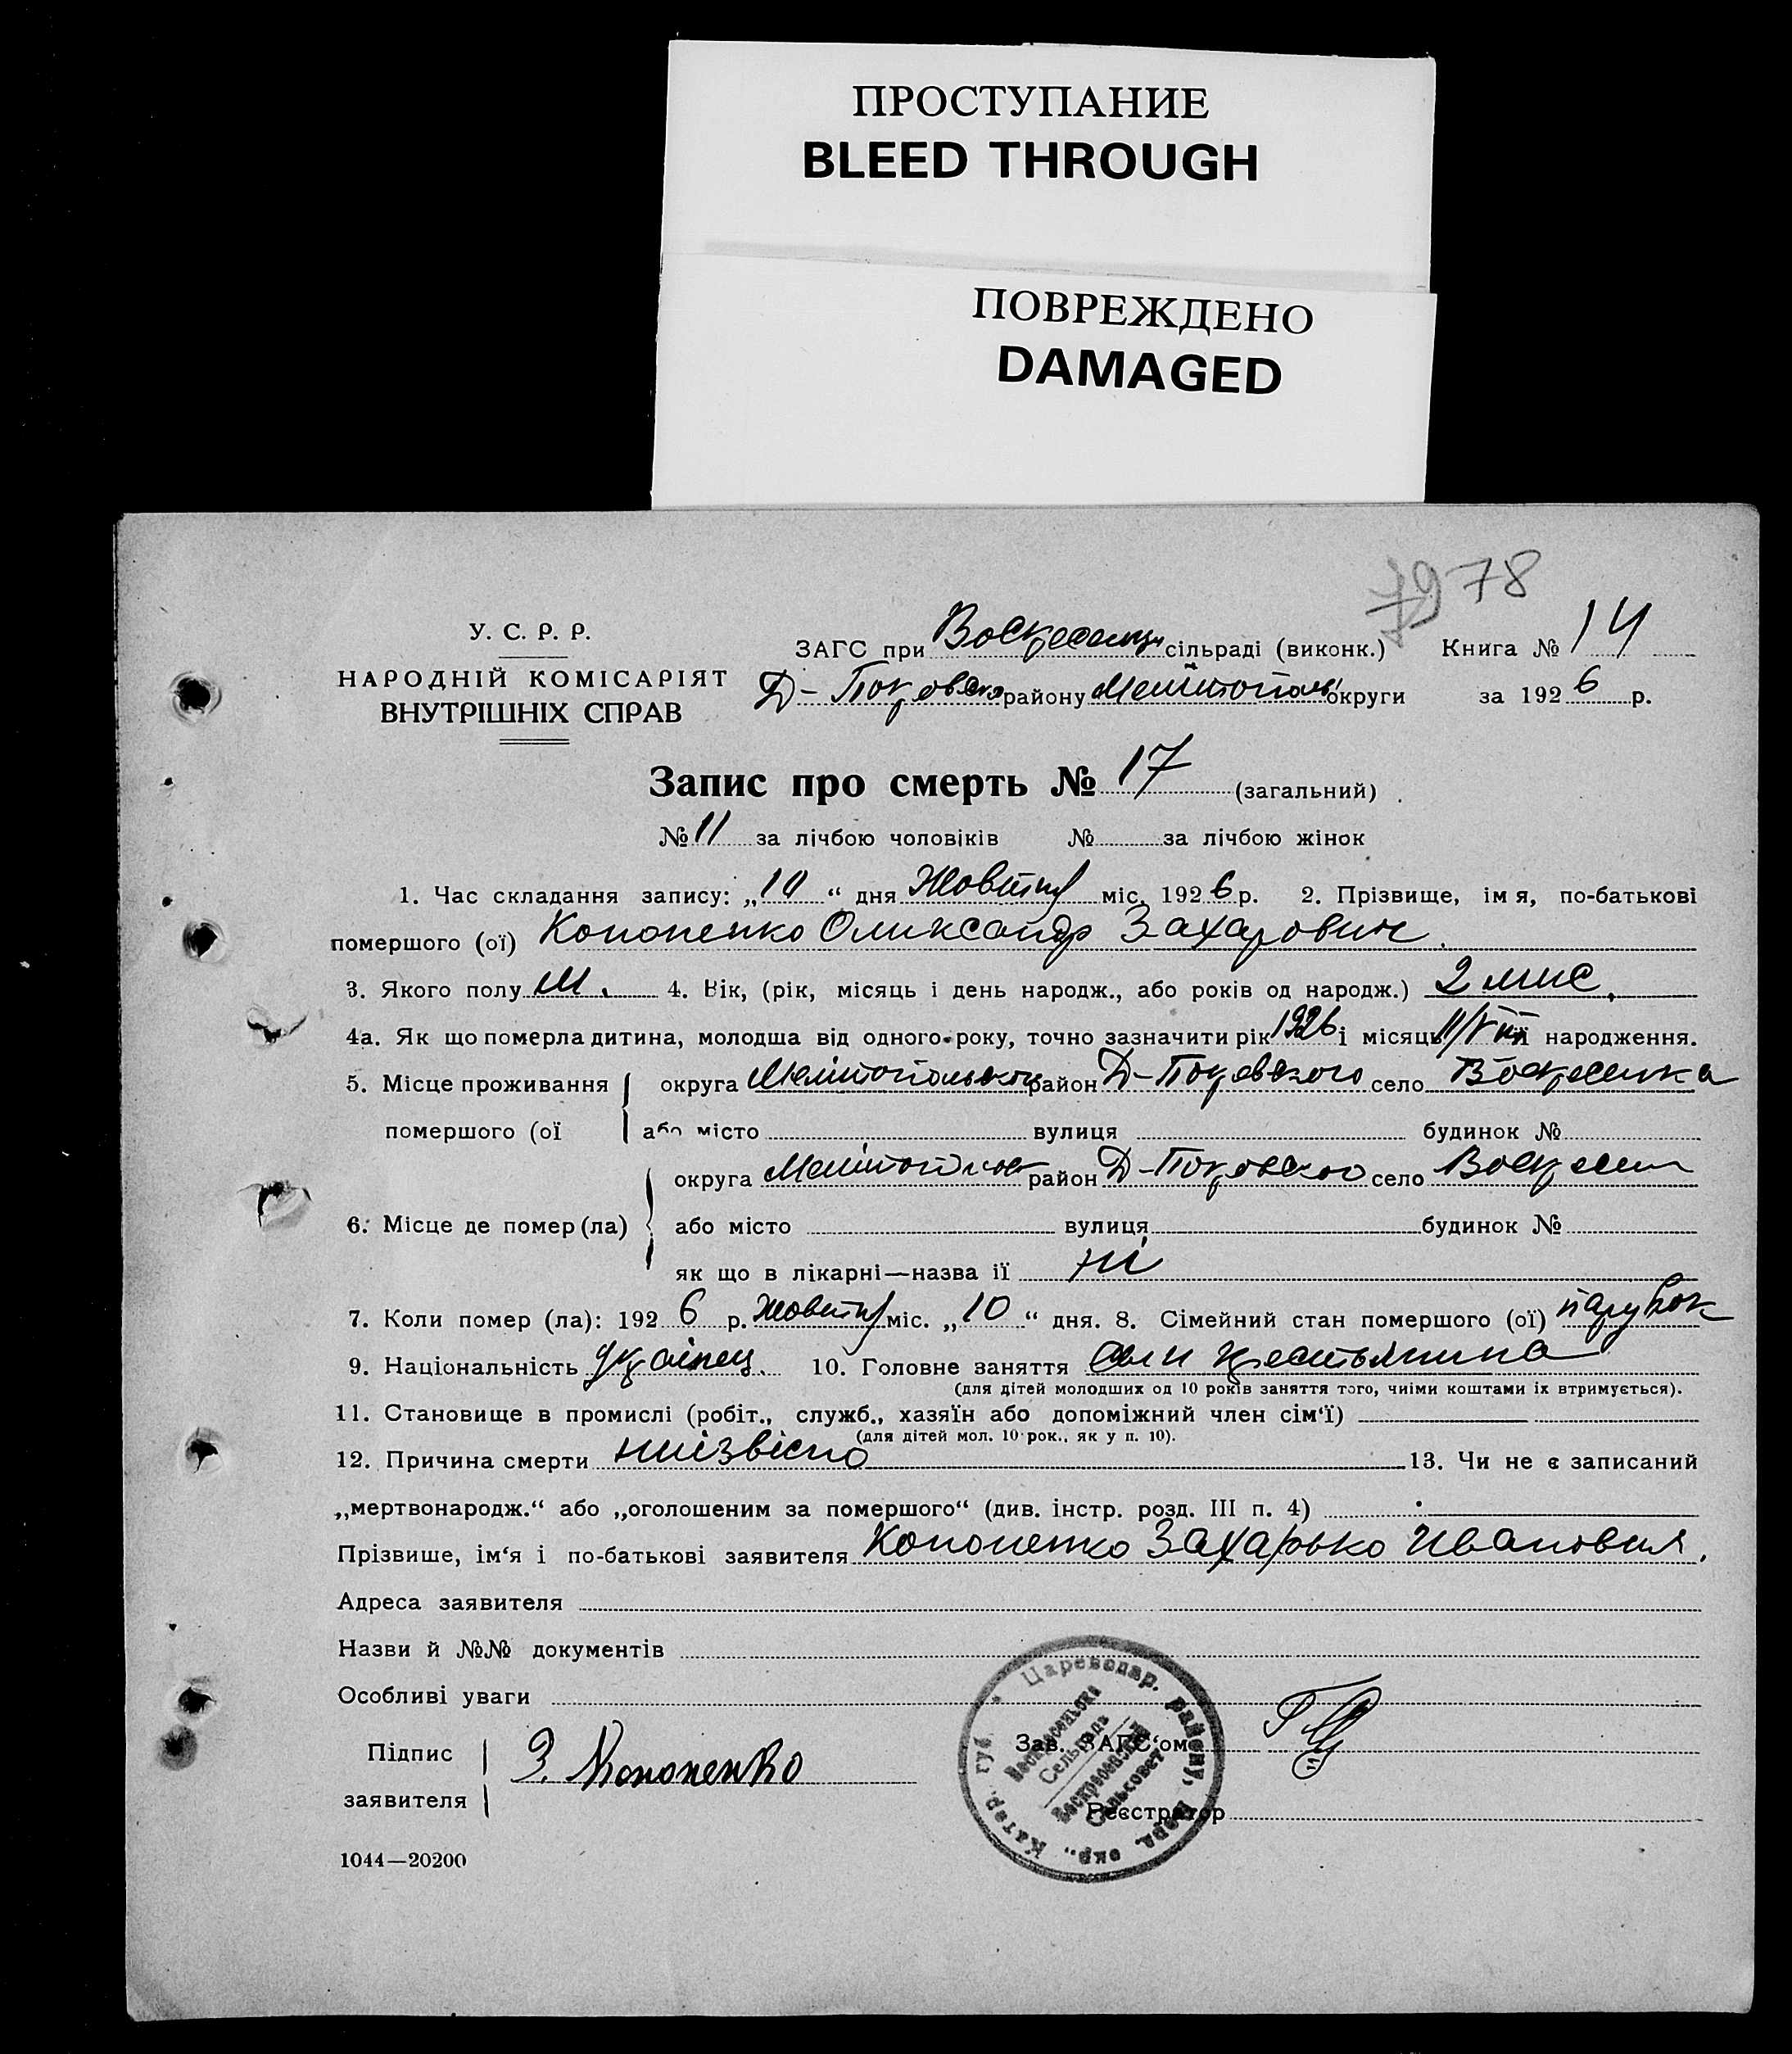 ПРОСТУПАНИЕ
BLEED THROUGH
ПОВРЕЖДЕНО
DAMAGED
78
У. С. Р. Р.
НАРОДНІЙ КОМІСАРІЯТ
ВНУТРІШНІХ СПРАВ
ЗАГС при сільраді (виконк.) Книга № 14
Д-Покровско району Мелітополь округи за 1926 р.
Запис про смерть № 17 (загальний)
№ 11 за лічбою чоловіків № за лічбою жінок
1. Час складання запису: „10“ дня Жовтня міс. 1926 р. 2. Прізвище, імя, по-батькові
помершого (ої) Кононенко Олександр Захарович.
3. Якого полу м. 4. Вік, (рік, місяць і день народж., або років од народж.) 2 мис.
4а. Як що померла дитина, молодша від одного року, точно зазначити рік 1926 і місяць її народження.
5. Місце проживання округа район Д-Покровского село Воскресенка
помершого (ої або місто вулиця будинок №
округа район Д-Покровского село Воскресен
6. Місце де помер (ла) або місто вулиця будинок №
як що в лікарні—назва її ні
7. Коли помер (ла): 1926 р. Жовтня міс. „10“ дня. 8. Сімейний стан помершого (ої) парубок
9. Національність Українец. 10. Головне заняття сын крестьянина
(для дітей молодших од 10 років заняття того, чиїми коштами їх втримується).
11. Становище в промислі (робіт., служб., хазяїн або допоміжний член сім‘ї)
(для дітей мол. 10 рок., як у п. 10).
12. Причина смерти низвісно 13. Чи не є записаний
„мертвонародж.“ або „оголошеним за помершого“ (див. інстр. розд. III п. 4)
Прізвише, ім‘я і по-батькові заявителя Кононенко Захарько Иванович.
Адреса заявителя
Назви й №№ документів
Особливі уваги
Підпис
заявителя
З. Кононенко
Зав. ЗАГС‘ом
Реєстратор
Цареводар. району,
окр., Катер. губ.
Сельрада
Воскресенский
Сельсовет
1044—20200